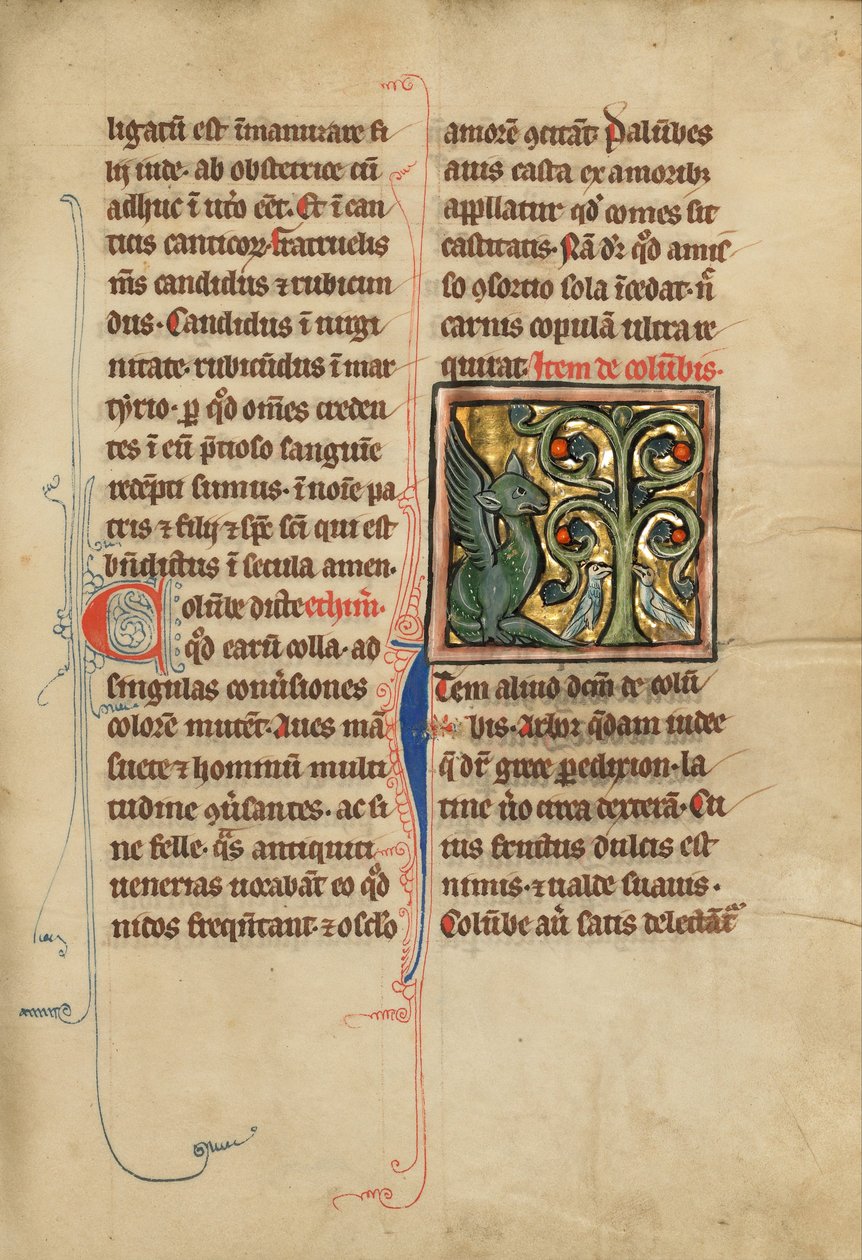 ligatū est ī manu zare fi
lij iude· ab obstetrice cū
adhuc ī utͦo eēt· Et ī can
ticis canticoꝝ· fratruelis
mēs candidus ⁊ rubicun
dus· Candidus ī uirgi
nitate· rubicūdus ī mar
tyrio· ꝑ qͦd om̄es creden
tes ī eū p̄tioso sanguīe
redēpti sumus· ī noīe pa
tris ⁊ filij ⁊ sp̄c sc̄i qui est
bn̄dictus ī secula amen·
Colūbe dicte ethim̄·
qͦd earū colla· ad
singulas conuͥsiones
colorē mutēt· Aues mā
suete ⁊ hominū multi
tudine ꝯuͥsantes· ac si
ne felle· qͣs antiquici
uenerias uocabāt eo qͦd
nidos freqn̄tant· ⁊ osclo
amorē ꝯcitāt· Palūbes
auis casta ex amoribꝫ
appllatur qd̓ comes sit
castitatis· Nā dr̄ qͦd amis
so ꝯsortio sola īcedat· n̄
carnis copulā ultra re
quirat· Item de colūbis·
Item aliud dcm̄ de colū
bis· Arbor qͥdam iudee
q̄ dr̄ grece ꝑedixion· la
tine ṽo circa dexterā· Cu
ius fructus dulcis est
nimis· ⁊ ualde suauis·
Colūbe au̓ satis delectāt̾